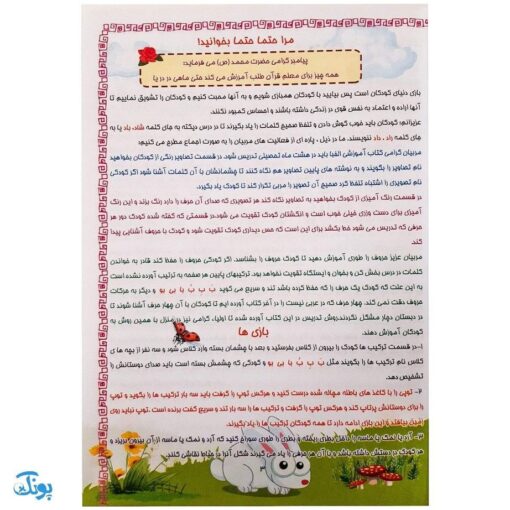 مرا حتما حتما بخوانید!
پیامبر گرامی حضرت محمد (ص) می فرماید:
همه چیز برای معلم قرآن طلب آمرزش می کند حتی ماهی در دریا
بازی دنیای کودکان است پس بیایید با کودکان همبازی شویم و به آنها محبت کنیم و کودکان را تشویق نماییم تا
آنها اراده و اعتماد به نفس قوی در زندگی داشته باشند و احساس کمبود نکنند.
عزیزانم: کودکان باید خوب گوش دادن و تلفظ صحیح کلمات را یاد بگیرند تا در درس دیکته به جای کلمه شاد، باد یا به
جای کلمه راد ، داد ننویسند. ما در ذیل ، پاره ای از فعالیت های مربیان را به صورت اجماع مطرح می کنیم:
مربیان گرامی کتاب آموزشی الفبا باید در هشت ماه تحصیلی تدریس شود. در قسمت تصاویر رنگی از کودکان بخواهید
نام تصاویر را بگویند و به نوشته های پایین تصاویر هم نگاه کنند تا چشمانشان با آن کلمات آشنا شود اگر کودکی
نام تصویری را اشتباه تلفظ کرد صحیح آن تصویر را مربی تکرار کند تا کودک یاد بگیرد.
در قسمت رنگ آمیزی از کودک بخواهید به تصاویر نگاه کند هر تصویری که صدای آن حرف را دارد رنگ بزند و این رنگ
آمیزی برای دست ورزی خیلی خوب است و انگشتان کودک تقویت می شود،در قسمتی که گفته شده کودک دور هر
حرفی که تدریس می شود خط بکشد برای این است که حس دیداری کودک تقویت شود و کودک با حروف آشنایی پیدا
کند
مربیان عزیز حروف را طوری آموزش دهید تا کودک حروف را بشناسد. اگر کودکی حروف را حفظ کند قادر به خواندن
کلمات در درس بخش کن و بخوان و ایستگاه تقویت نخواهد بود. ترکیبهای پایین هر صفحه به ترتیب آورده نشده است
به این علت که کودک یک حرف را که حفظ کرده باشد تند و سریع می گوید بَ بِ بُ با بی بو و دیگر به حرکات
حروف دقت نمی کند. چهار حرف که در عربی نیست را در آخر کتاب آورده ایم تا کودکان با آن چهار حرف آشنا شوند تا
در دبستان دچار مشکل نگردند.روش تدریس در این کتاب آورده شده تا اولیاء گرامی نیز در منزل با همین روش به
کودکان آموزش دهند.
بازی ها
۱-در قسمت ترکیب ها کودک را بیرون از کلاس بفرستید و بعد با چشمان بسته وارد کلاس شود و سه نفر از بچه های
کلاس نام ترکیب ها را بگویند مثل بَ بِ بُ با بی بو و کودکی که چشمش بسته است باید صدای دوستانش را
تشخیص دهد.
۲- توپی را با کاغذ های باطله مچاله شده درست کنید و هرکس توپ را گرفت باید سه بار ترکیب ها را بگوید و توپ
را برای دوستانش پرتاب کند و هرکس توپ را گرفت و ترکیب ها را سه بار تند و سریع گفت برنده است .توپ نباید روی
زمین بیافتد و این بازی ادامه دارد تا همه کودکان ترکیب ها را یاد بگیرند.
۳- آرد یا نمک یا ماسه را داخل بطری ریخته و بطری را طوری سوراخ کنید که آرد و نمک یا ماسه از آن بیرون بریزد و
هر کودک در دستش داشته باشد و با آن هر حرفی را یاد می گیرند شکل آنرا در حیاط نقاشی کنند.
۳
پونک